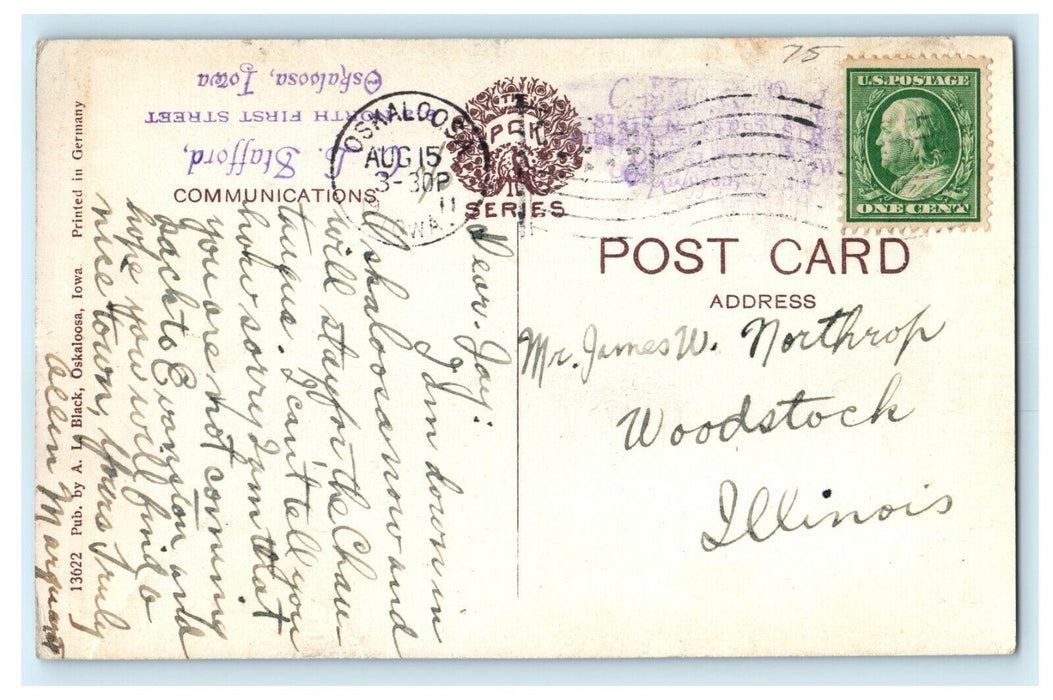 75
U.S. POSTAGE
ONE CENT
OSKALOOSA
AUG 15
3-30P
11
IOWA
THE
PCK
SERIES
Stafford,
NORTH FIRST STREET
Oskaloosa, Iowa
COMMUNICATIONS
POST CARD
ADDRESS
Mr. James W. Northrop
Woodstock
Illinois
Dear Jay:
I am down in
Oskaloosa now and
will stay for the Chau-
tauqua. I can't tell you
how sorry I am that
you are not coming
back to Evanston and
hope you will find a
nice town, Yours Truly
Allen Marquart
13622 Pub. by A. L. Black, Oskaloosa, Iowa Printed in Germany